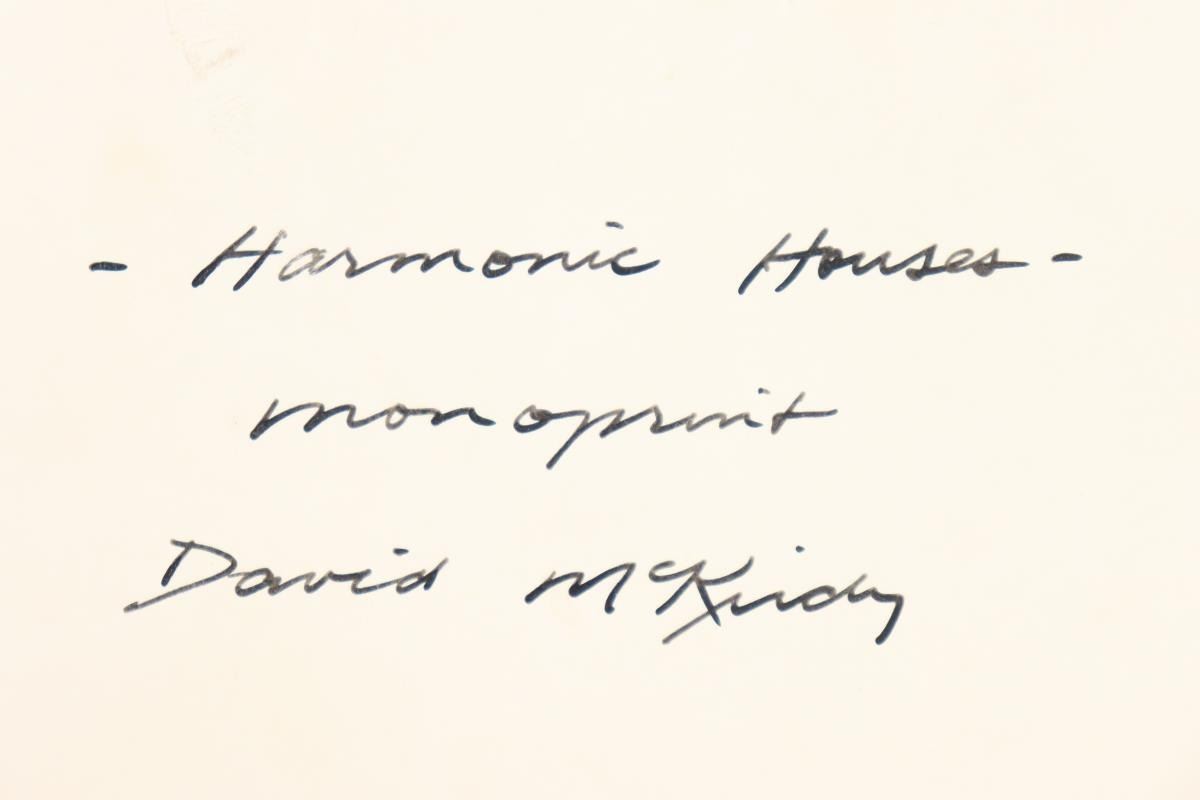 - Harmonic Houses -
monoprint
David McKirdy